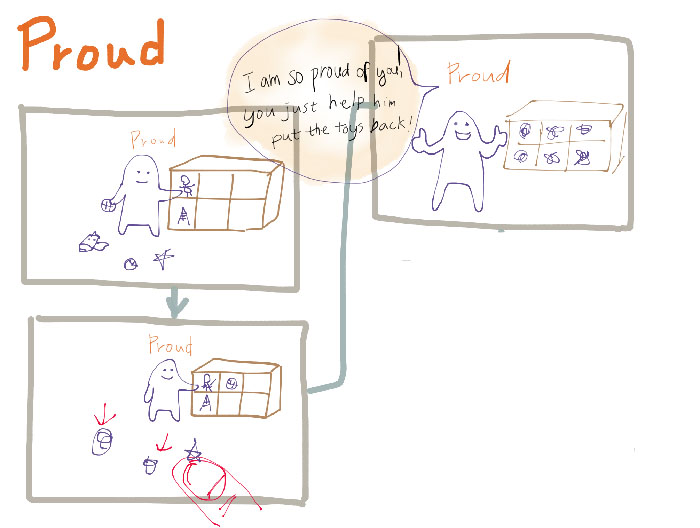 Proud
Proud
Proud
I am so proud of you,
you just help him
put the toys back!
Proud